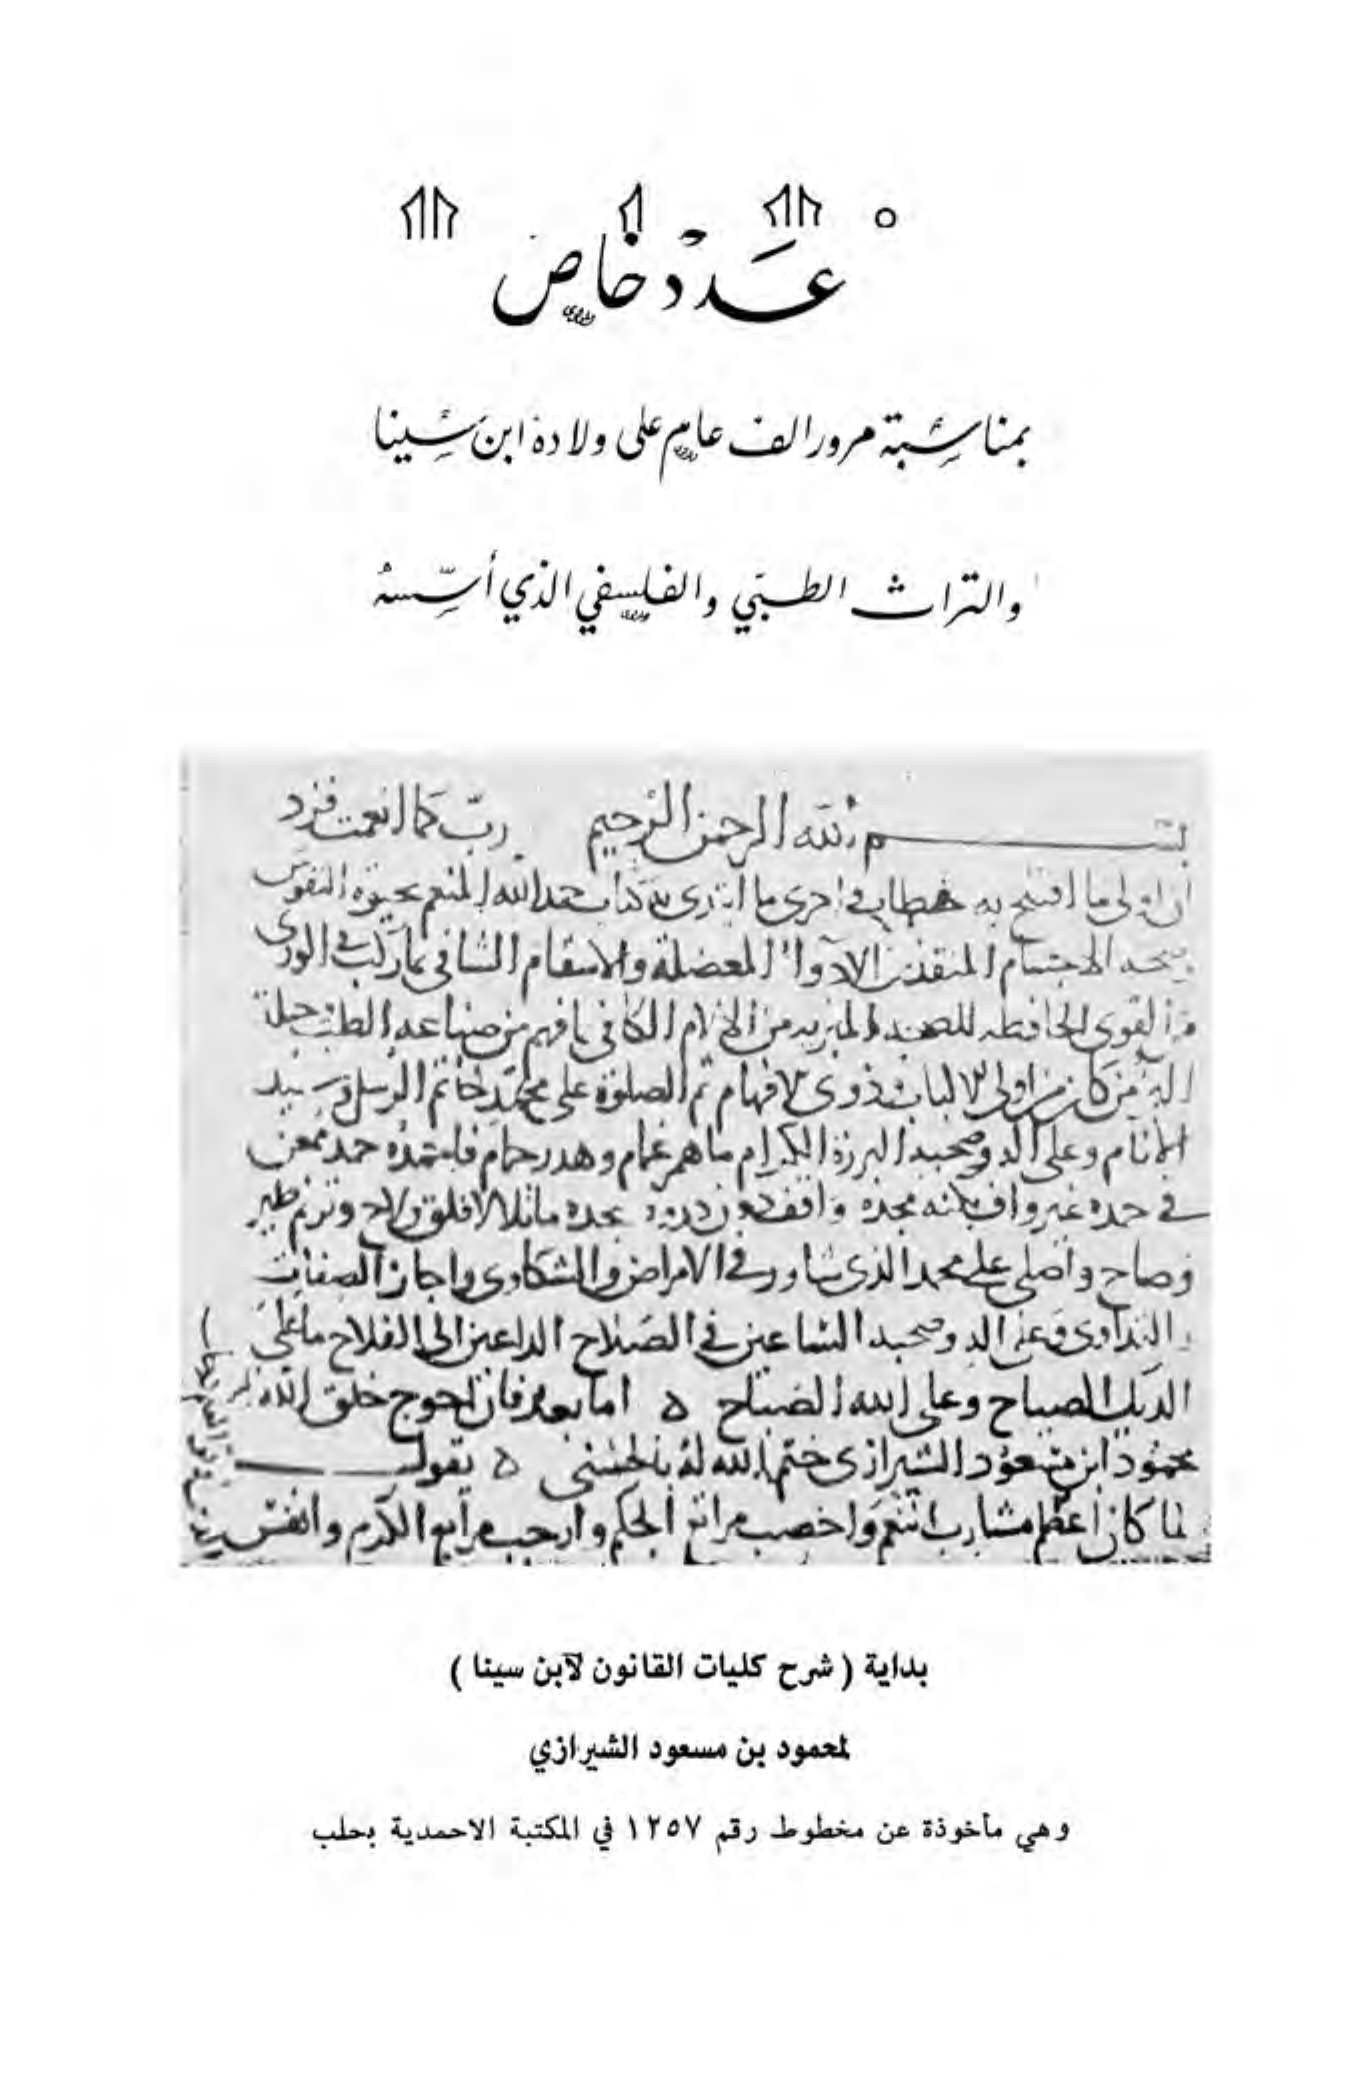 عَدَدْ خاص
بمناسبة مرور الف عام على ولادة ابن سينا
والتراث الطبّي والفلسفي الذي أسّسهُ
بسم الله الرحمن الرحيم ربّ كما انعمت فزد
ان اولى ما افتتح به خطاب و احرى ما ابتدى به كتاب حمد الله المنعم بحيوة النفوس
الاجسام المنقذ من الادوا المعضلة والاسقام الشافى بما ركب فى الورى
من القوى الحافظه للصحه من الالام الكافى بما فهم من صناعه الطب
من كان من اولى الالباب وذوى الافهام ثم الصلوة على محمّد خاتم الرسل وسيد
الانام وعلى اله وصحبه البررة الكرام ما همر غمام وهدر حمام فاحمده حمد ممعن
في حمده غير واف واقف دون ما تلالا لاح وترنم طير
وصاح واصلى على محمد الذى فى الامراض والشكاوى
والتداوى وعلى اله وصحبه الساعين فى الصلاح الداعين الى الفلاح ما
الديك الصباح وعلى الله اما بعد فان احوج خلق الله
محمود ابن مسعود الشيرازى ختم الله له بالحسنى يقول
لما كان اعظم مشارب واخصب مراتع الحكم وارحب مرابع الكرم وانفس
بداية ( شرح كليات القانون لآبن سينا )
لمحمود بن مسعود الشيرازي
وهي مأخوذة عن مخطوط رقم ١٢٥٧ في المكتبة الاحمدية بحلب